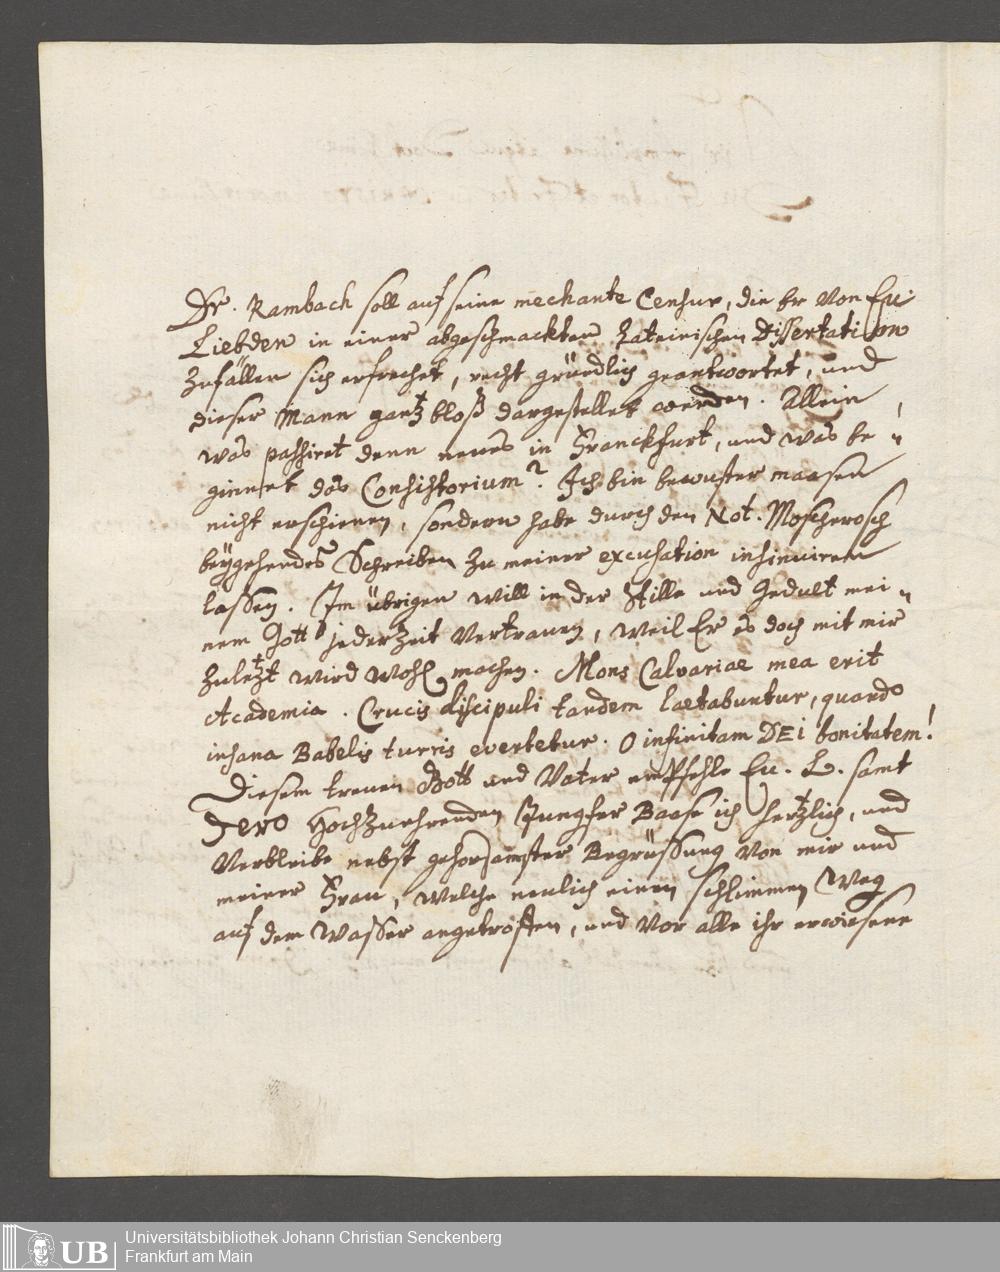 Dr. Rambach soll auf seine mechante Censur, die Er von Eu.
Liebden in einer abgeschmackten Lateinischen Dissertation
zufällen sich erfrechet, recht gründlich geantwortet, und
dieser Mann gantz bloß dargestellet werden. Allein,
was passiret denn neues in Franckfurt, und was be-
ginnet das Consistorium? Ich bin bewuster maasen
nicht erschienen, sondern habe durch den Not. Moscherosch
beÿgehendes Schreiben zu meiner excusation insinuiren
lassen. Im übrigen will in der Stille und Gedult mei-
nem Gott jederzeit vertrauen, weil Er es doch mit mir
zuletzt wird wohl machen. Mons Calvariae mea erit
Academia. Crucis discipuli tandem laetabuntur, quando
insana Babelis turris evertetur. O infinitam DEI bonitatem!
Diesem treuen Gott und Vater empfehle Eu. L. samt
Dero Hochzuehrenden Jungfer Baase ich hertzlich, und
verbleibe nebst gehorsamster Begrüssung von mir und
meiner Frau, welche neulich einen schlimmen Weg
auf dem Wasser angetroffen, und vor alle ihr erwiesene
UB
Universitätsbibliothek Johann Christian Senckenberg
Frankfurt am Main